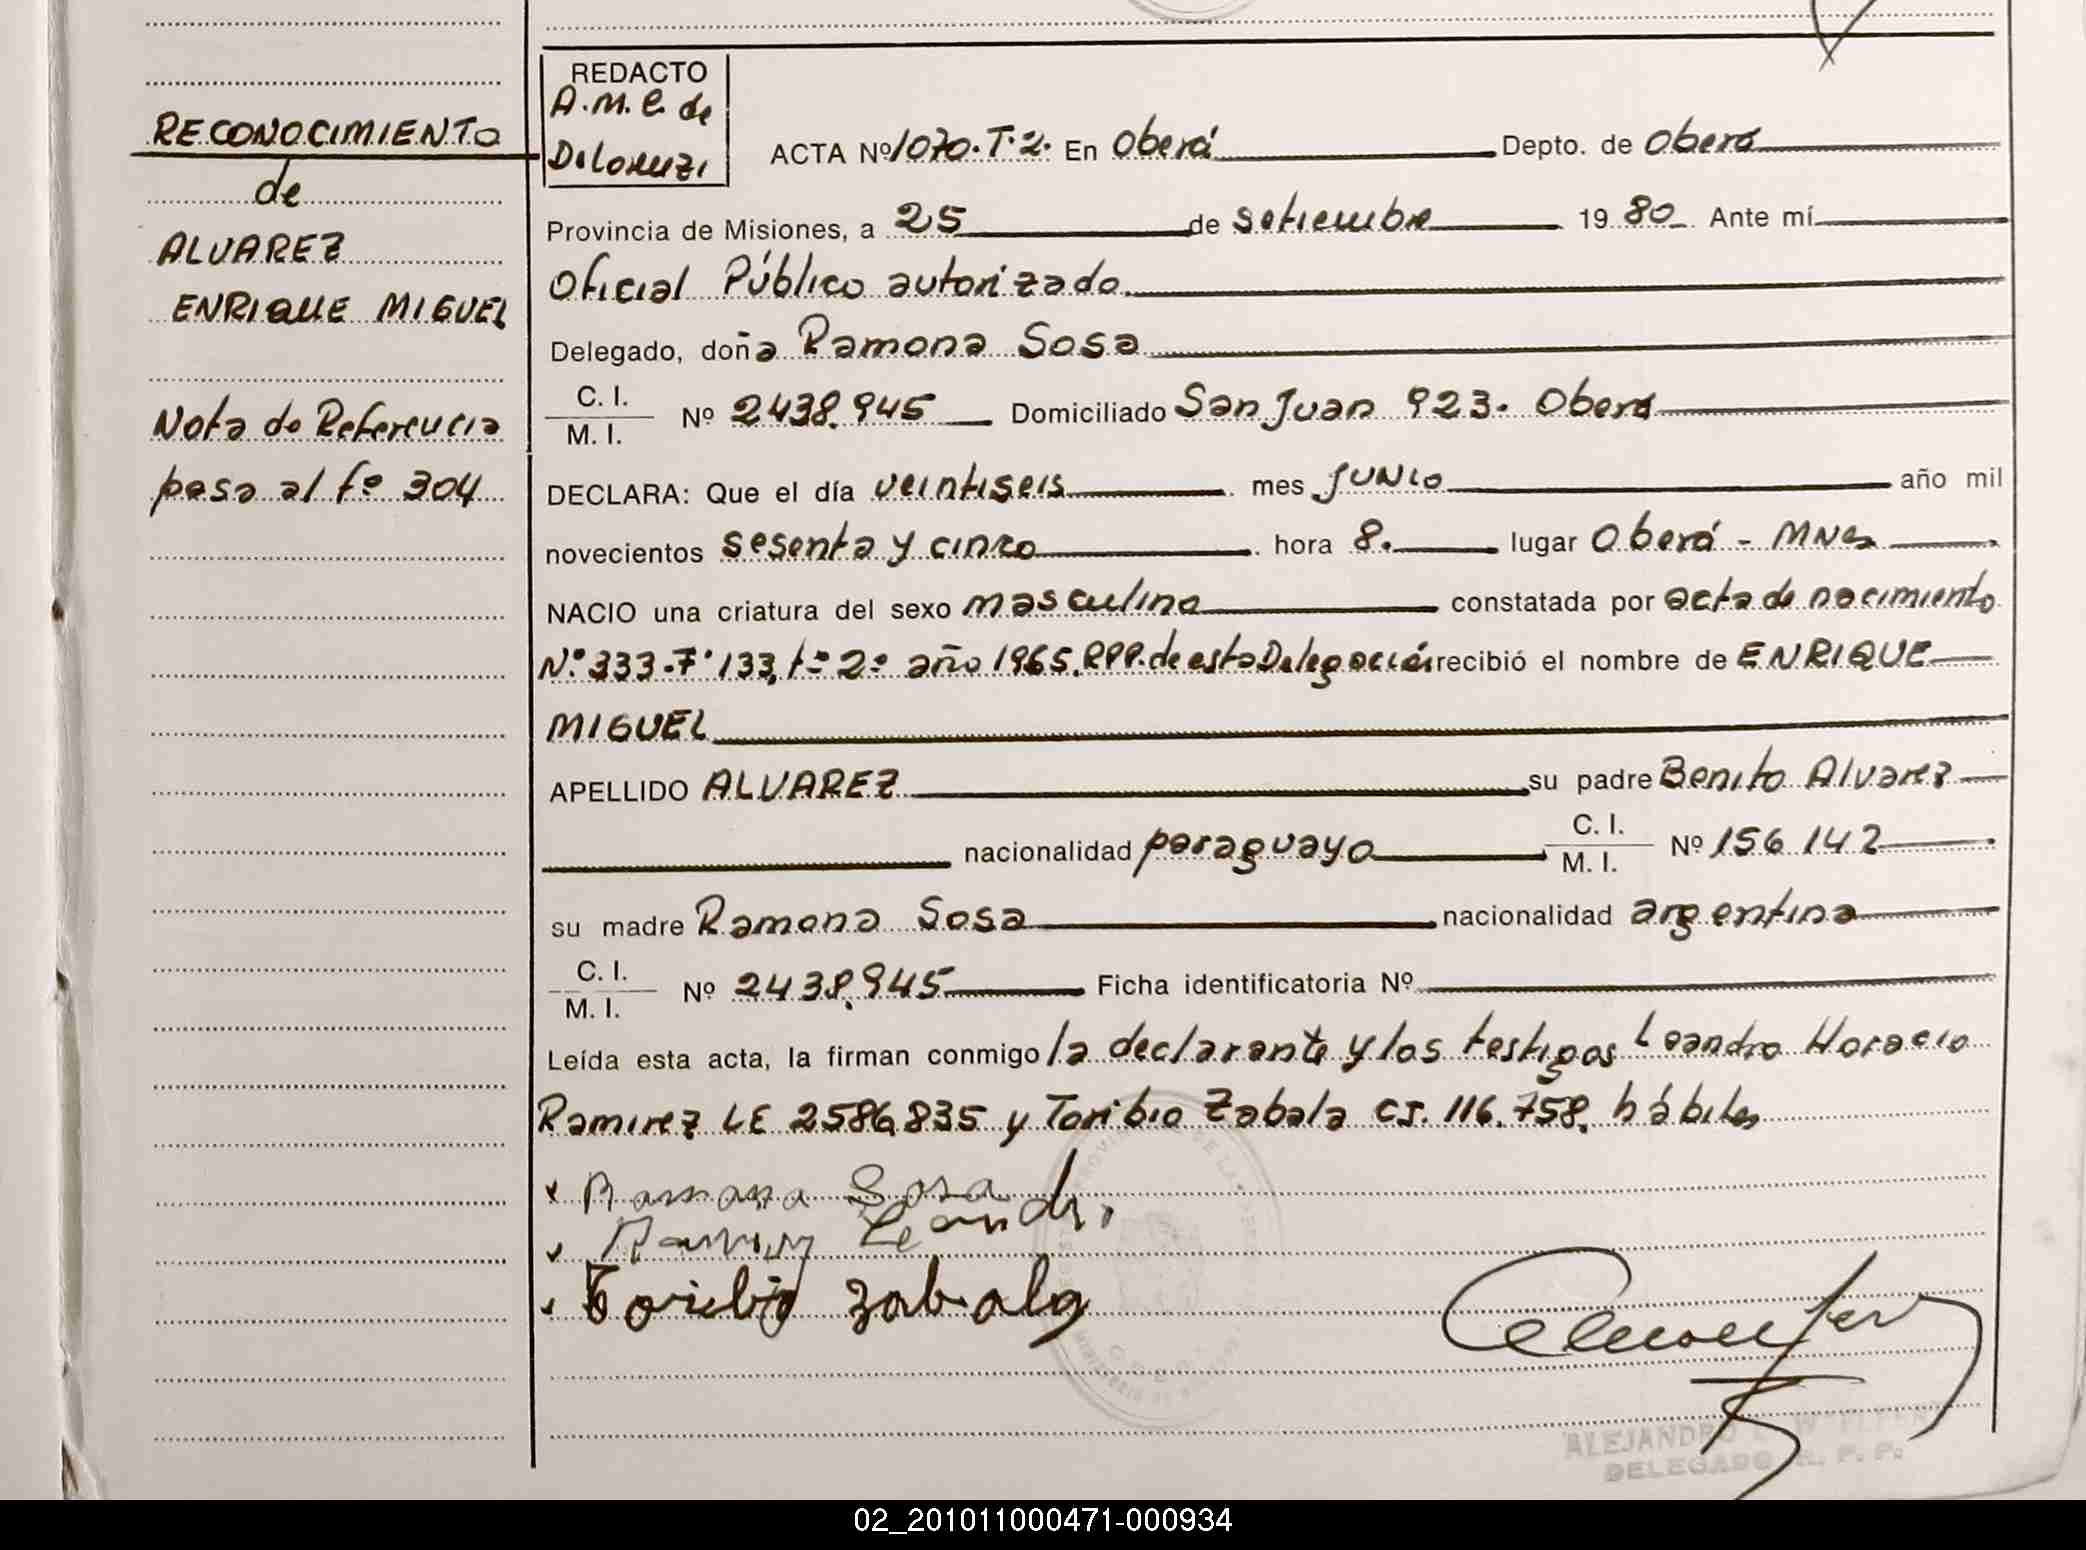 RECONOCIMIENTO
de
ALVAREZ
ENRIQUE MIGUEL
Nota de Referencia
pasa al fº 304
REDACTO
A.M.C. de
ACTA Nº 1070. T. 2. En Oberá Depto. de Oberá
Provincia de Misiones, a 25 de setiembre 19 80 Ante mí
Oficial Público autorizado
Delegado, doña Ramona Sosa
C. I.
M. I. Nº 2438.945 Domiciliado San Juan 923. Oberá
DECLARA: Que el día veintiseis mes JUNIO año mil
novecientos sesenta y cinco hora 8. lugar Oberá - MNes
NACIO una criatura del sexo masculino constatada por acta de nacimiento
Nº 333. Fº 133, tº 2º año 1965. RPP. de esta Delegación recibió el nombre de ENRIQUE
MIGUEL
APELLIDO ALVAREZ su padre Benito Alvarez
nacionalidad paraguayo C. I.
M. I. Nº 156 142
su madre Ramona Sosa nacionalidad argentina
C. I.
M. I. Nº 2438.945 Ficha identificatoria Nº
Leída esta acta, la firman conmigo la declarante y los testigos Leandro Horacio
Ramirez LE 2586.835 y Toribio Zabala CI. 116.758, hábiles
Ramona Sosa
Leandr
Toribio Zabala
ALEJANDRO
DELEGADO R. P. P.
02_201011000471-000934